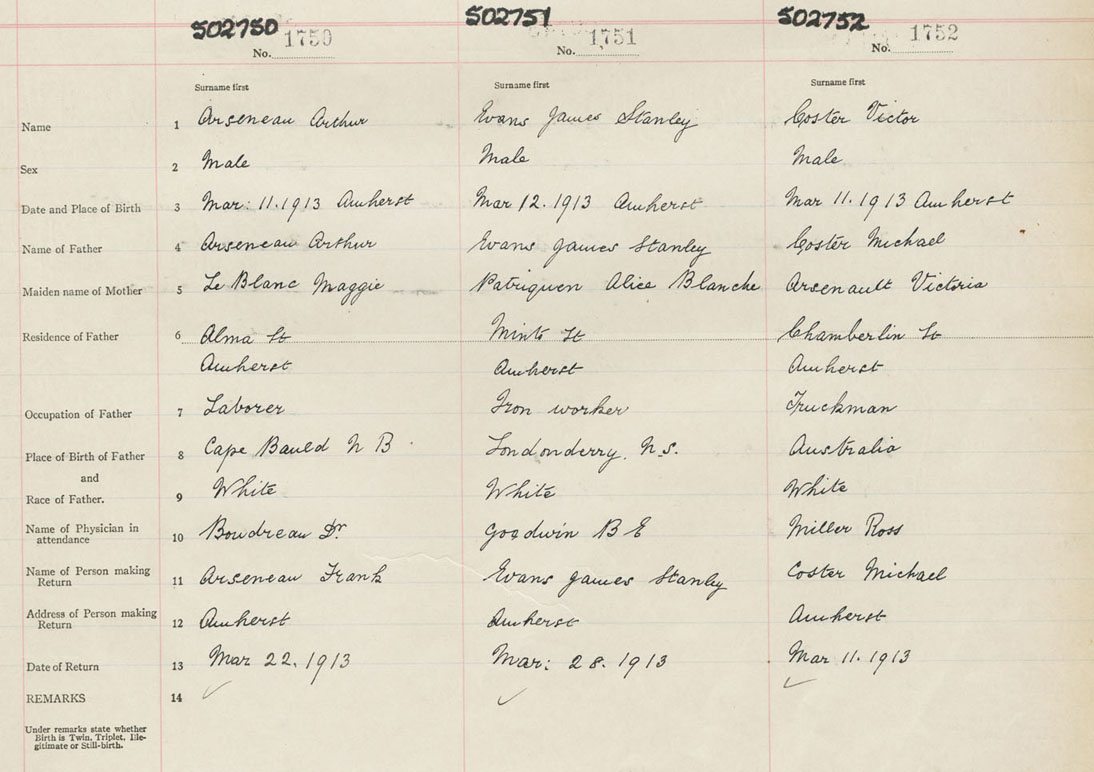 502750 502751 502752
No. 1750 No. 1751 No. 1752
Surname first Surname first Surname first
Name 1 Arseneau Arthur Evans James Stanley Coster Victor
Sex 2 Male Male Male
Date and Place of Birth 3 Mar: 11. 1913 Amherst Mar 12. 1913 Amherst Mar 11. 1913 Amherst
Name of Father 4 Arseneau Arthur Evans James Stanley Coster Michael
Maiden name of Mother 5 Le Blanc Maggie Patriquen Alice Blanche Arsenault Victoria
Residence of Father 6 Alma St Minto St Chamberlin St
Amherst Amherst Amherst
Occupation of Father 7 Laborer Iron worker Truckman
Place of Birth of Father 8 Cape Bauld N B Londonderry. N.S. Australia
and
Race of Father. 9 White White White
Name of Physician in
attendance 10 Boudreau Dr. Goodwin B E Miller Ross
Name of Person making
Return 11 Arseneau Frank Evans James Stanley Coster Michael
Address of Person making
Return 12 Amherst Amherst Amherst
Date of Return 13 Mar 22. 1913 Mar: 28. 1913 Mar 11. 1913
REMARKS 14
Under remarks state whether
Birth is Twin, Triplet, Ille-
gitimate or Still-birth.